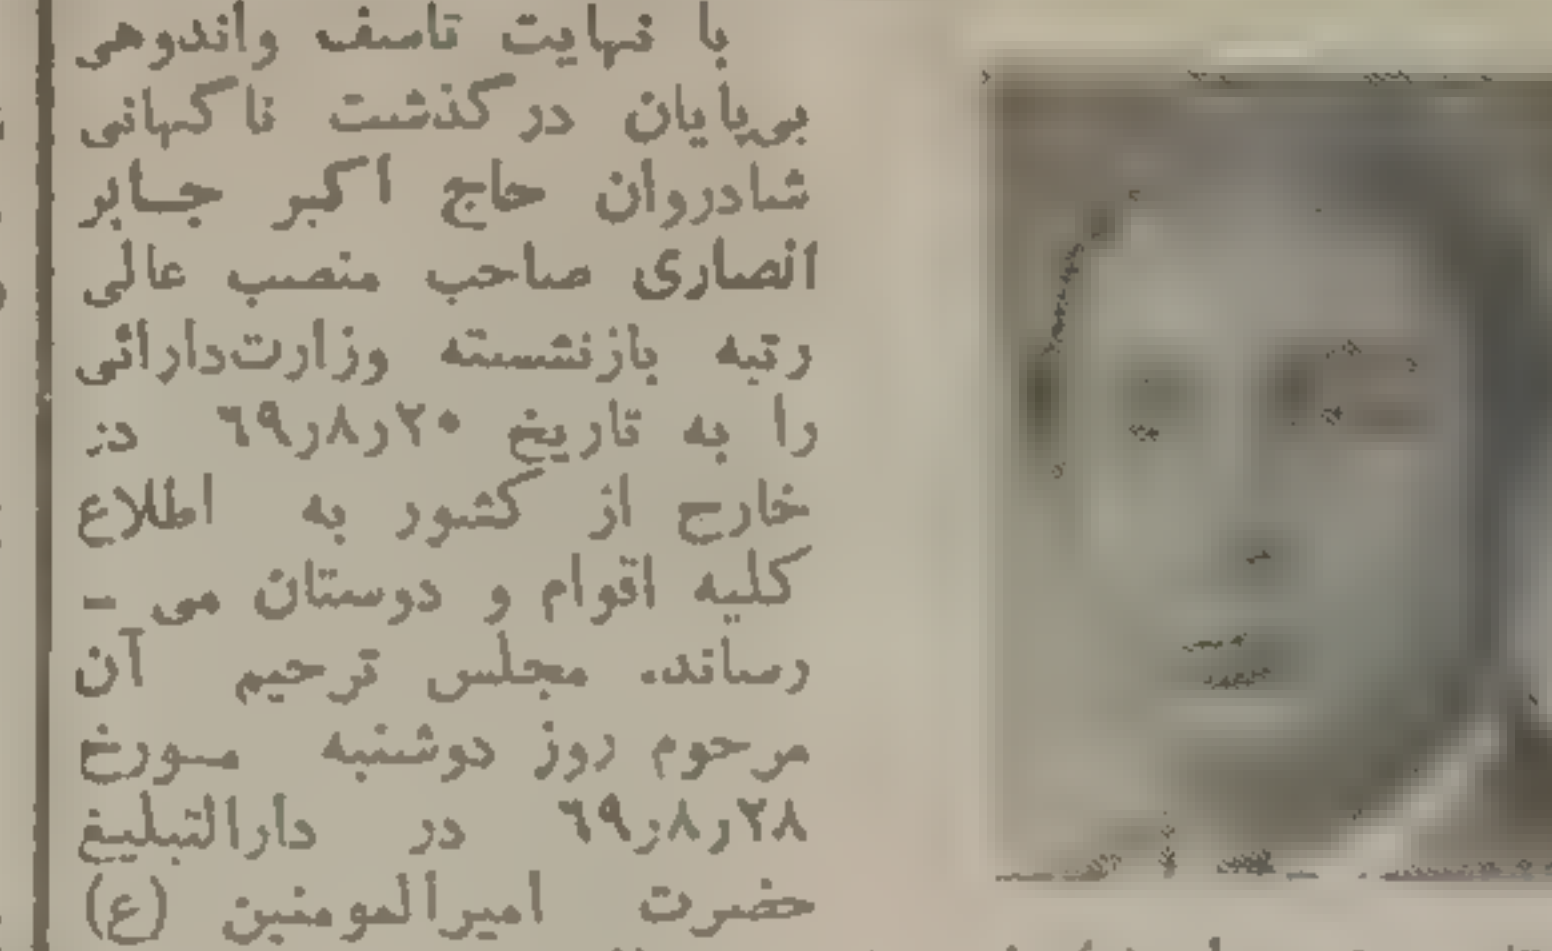 با نهایت تاسف واندوهی
بی‌پایان درگذشت ناگهانی
شادروان حاج اکبر جـابر
انصاری صاحب منصب عالی
رتبه بازنشسته وزارت‌دارائی
را به تاریخ ۲۰ر۸ر۶۹ در
خارج از کشور به اطلاع
کلیه اقوام و دوستان می -
رساند. مجلس ترحیم آن
مرحوم روز دوشنبه مـورخ
۲۸ر۸ر۶۹ در دارالتبلیغ
حضرت امیرالمومنین (ع)